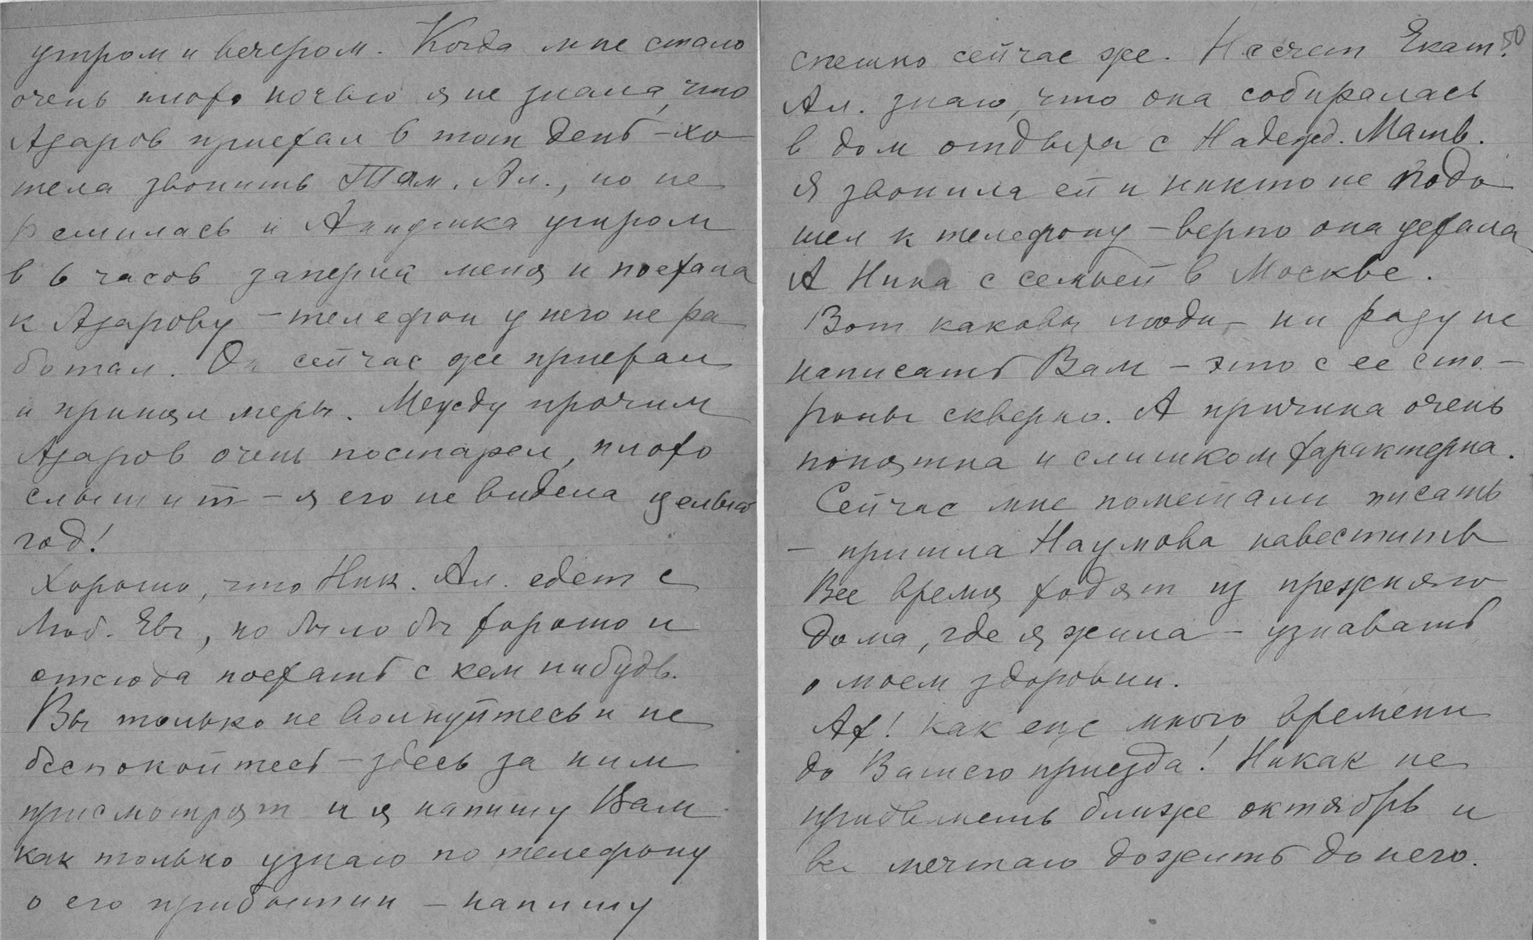 утром и вечером. Когда мне стало
очень плохо ночью я не знала, что
Азаров приехал в тот день – хо
тела звонить Там. Ал., но не
решилась и Аннушка утром
в 6 часов заперла меня и поехала
к Азарову – телефон у него не ра
ботал. Он сейчас же приехал
и принял меры. Между прочим
Азаров очень постарел, плохо
слышит – я его не видела целый
год!
Хорошо, что Ник. Ал. едет с
Люб. Евг, но было бы хорошо и
отсюда поехать с кем нибудь.
Вы только не волнуйтесь и не
беспокойтесь – здесь за ним
присмотрят и я напишу Вам
как только узнаю по телефону
о его прибытии – напишу
50
спешно сейчас же. Насчет Екат.
Ал. знаю, что она собиралась
в дом отдыха с Надежд. Матв.
Я звонила ей и никто не подо
шел к телефону – верно она уехала
А Нина с семьей в Москве.
Вот каковы люди – ни разу не
написать Вам – это с ее сто–
роны скверно. А причина очень
понятна и слишком характерна.
Сейчас мне помешали писать
– пришла Наумова навестить
Все время ходят из прежнего
дома, где я жила – узнавать
о моем здоровии.
Ах! как еще много времени
до Вашего приезда! Никак не
придвинешь ближе октябрь и
все мечтаю дожить до него.